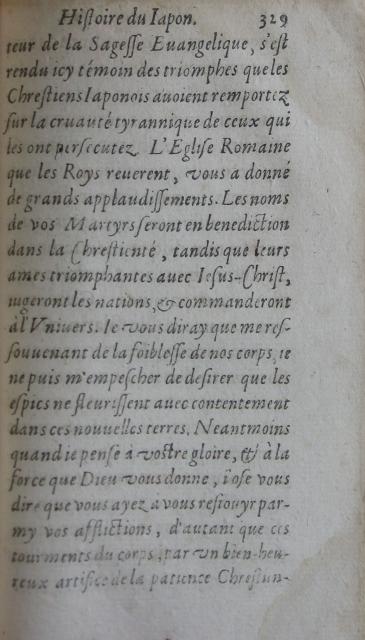 Hiſtoire du Iapon. 329
teur de la Sageſſe Euangelique, s'eſt
rendu icy témoin des triomphes que les
Chreſtiens Iaponois auoient remportez
ſur la cruauté tyrannique de ceux qui
les ont perſecutez. L'Egliſe Romaine
que les Roys reuerent, vous a donné
de grands applaudiſſements. Les noms
de vos Martyrs ſeront en benediction
dans la Chreſtienté, tandis que leurs
ames triomphantes auec Ieſus-Chriſt,
iugeront les nations, & commanderont
à l'Vniuers. Ie vous diray que me reſ-
ſouuenant de la foibleſſe de nos corps, ie
ne puis m'empeſcher de deſirer que les
eſpics ne fleuriſſent auec contentement
dans ces nouuelles terres. Neantmoins
quand ie penſe à voſtre gloire, & à la
force que Dieu vous donne, i'oſe vous
dire que vous ayez à vous reſiouyr par-
my vos afflictions, d'autant que ces
tourments du corps, par vn bien-heu-
reux artifice de la patience Chreſtien-